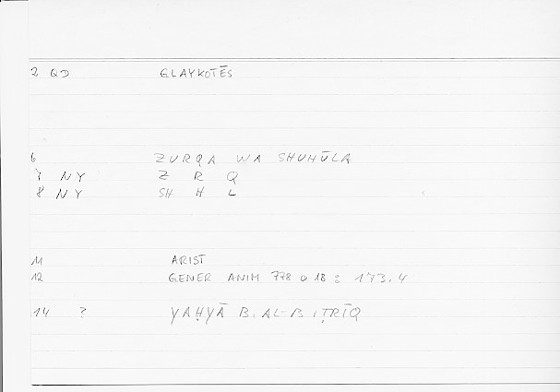 2 QD GLAYKOTĒS
6 ZURQA WA SHUHŪLA
7 NY Z R Q
8 NY SH H L
11 ARIST
12 GENER ANIM 778 a 18 = 173.4
14 ? YAḤYĀ B. AL-BIṬRĪQ